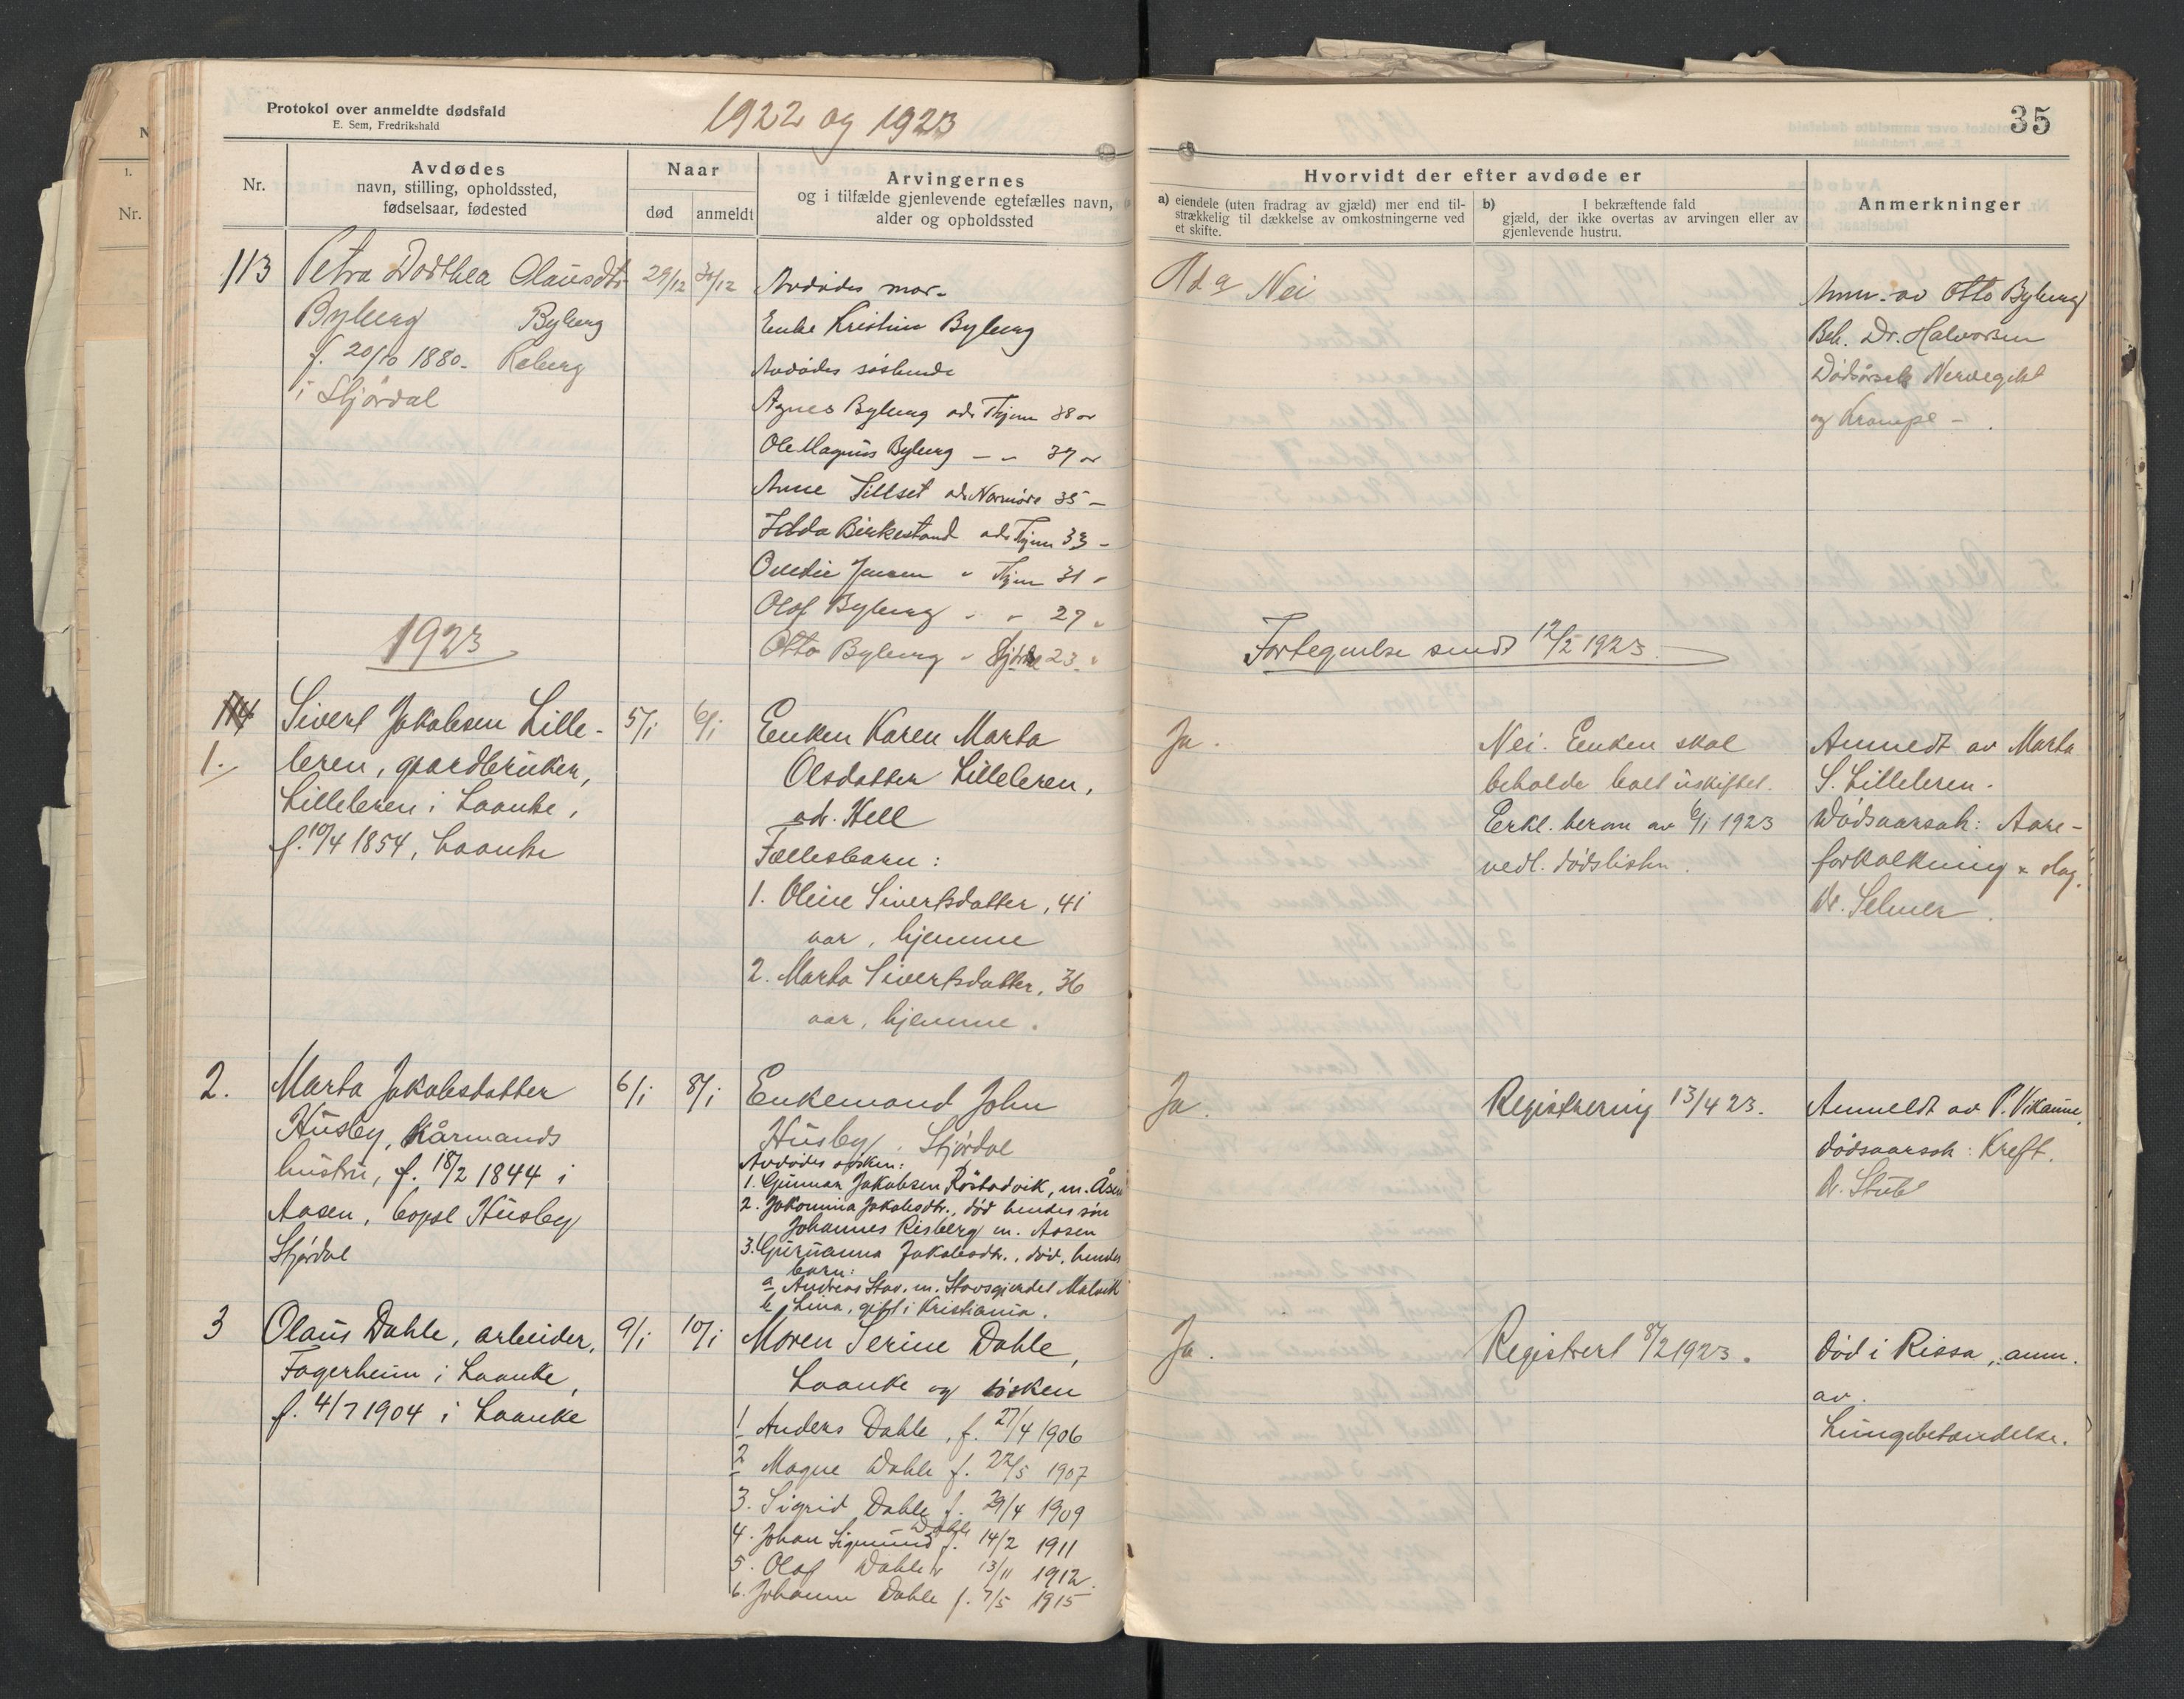 Protokol over anmeldte dødsfald
E. Sem, Fredrikshald
1922 og 1923
35
Nr.
Avdødes
navn, stilling, opholdssted,
fødselsaar, fødested
Naar
død
anmeldt
Arvingernes
og i tilfælde gjenlevende egtefælles navn,
alder og opholdssted
Hvorvidt der efter avdøde er
a) eiendele (uten fradrag av gjæld) mer end til-
strækkelig til dækkelse av omkostningerne ved
et skifte.
b) I bekræftende fald
gjæld, der ikke overtas av arvingen eller av
gjenlevende hustru.
Anmerkninger
113
Petra Dorthea Olausdtr
Byberg Byberg
f. 20/10 1880.
i Stjørdal
29/12
30/12
Avdødes mor.
Enke Kristine Byberg
Avdødes søskende
Agnes Byberg adr Thjem 38 år
Ole Magnus Byberg — " 37 år
Anne Sillset adr Normøre 35 —
Hilda Birkestand adr Thjem 33 —
Ovedie Jensen " Thjem 31 "
Olof Byberg " " 27 "
Otto Byberg " 23 "
Ad a Nei
Anm. av Otto Byberg
Beh. Dr. Halvorsen
Dødsårsak Nervegikt
og Krampe —
1923
Fortegnelse sendt 12/2 1923.
114
1.
Sivert Jakobsen Lille-
leren, gaardbruker,
Lilleleren i Laanke,
f. 10/4 1854, Laanke
5/1
6/1
Enken Karen Marta
Olsdatter Lilleleren,
adr. Hell
Fællesbarn:
1. Oline Sivertsdatter, 41
aar, hjemme
2. Marta Sivertsdatter, 36
aar, hjemme.
Ja.
Nei. Enken skal
beholde boet uskiftet.
Erkl. herom av 6/1 1923
vedl. dødslisten.
Anmeldt av Marta
S. Lilleleren.
Dødsaarsak: Aare-
forkalkning & slag.
Dr. Selmer.
2.
Marta Jakobsdatter
Husby, kårmands
hustru, f. 18/2 1844 i
Aasen, bopl Husby
Stjørdal
6/1
8/1
Enkemand John
Husby, Stjørdal
Avdødes søsken:
1. Gunnar Jakobsen Røstadvik, m. Åsen
2. Jakomina Jakobsdtr., død hendes søn
Johannes Risberg m. Aasen
3. Guruanna Jakobsdtr., død, hendes
barn:
a, Andreas Stav, m. Stavsgjerdet Malvik
b Lina, gift i Kristiania.
Ja.
Registrering 13/4 23.
Anmeldt av P. Vikanne.
dødsaarsak: Kreft.
Dr. Stubø
3
Olaus Dahle, arbeider,
Fagerheim i Laanke,
f. 4/7 1904 i Laanke
9/1
10/1
Moren Serine Dahle,
Laanke og søsken
1 Anders Dahle, f. 27/4 1906
2 Magne Dahle f. 22/5 1907
3. Sigrid Dahle f. 29/4 1909
4. Johan Sigmund Dahle f. 14/2 1911
5. Olaf Dahle 13/11 1912.
6. Johanne Dahle f. 7/5 1915
Ja.
Registrert 8/2 1923.
Død i Rissa, anm.
av.
Lungebetændelse.